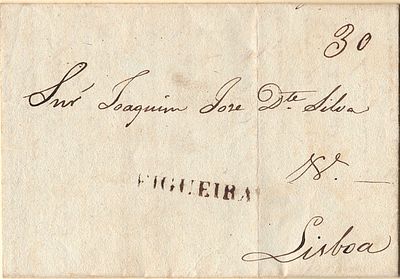 30
Snr Joaquim Jose Dte Silva
FIGUEIRA
N. —
Lisboa